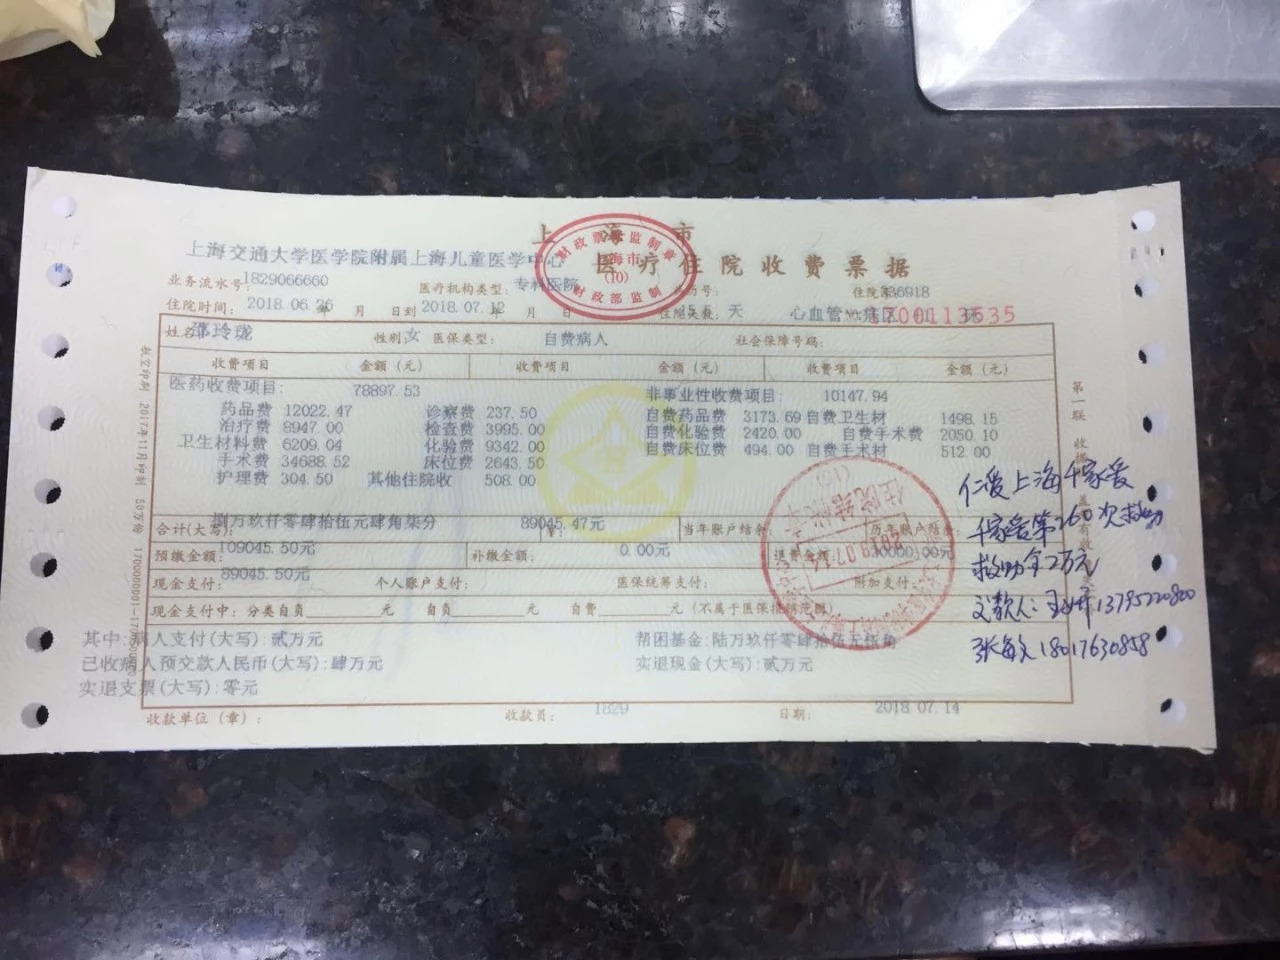 上海市
上海交通大学医学院附属上海儿童医学中心 医疗住院收费票据
业务流水号:1829066660 医疗机构类型:专科医院 住院号:
住院时间:2018.06.26 年 月 日到2018.07.12 年 月 日 住院天数: 天 心血管
姓名: 玲珑 性别:女 医保类型: 自费病人 社会保障号码:
收费项目 金额(元) 收费项目 金额(元) 收费项目 金额(元)
医药收费项目: 78897.53 非事业性收费项目: 10147.94
药品费 12022.47 诊察费 237.50 自费药品费 3173.69 自费卫生材 1498.15
治疗费 8947.00 检查费 3995.00 自费化验费 2420.00 自费手术费 2050.10
卫生材料费 6209.04 化验费 9342.00 自费床位费 494.00 自费手术材 512.00
手术费 34688.52 床位费 2643.50
护理费 304.50 其他住院收 508.00
合计(大写): 捌万玖仟零肆拾伍元肆角柒分 89045.47元 当年账户结余 历年账户结余:
预缴金额:109045.50元 补缴金额: 0.00元 退费金额:
现金支付:89045.50元 个人账户支付: 医保统筹支付: 附加支付:
现金支付中:分类自负 元 自负 元 自费 元(不属于医保报销范围)
其中:病人支付(大写):贰万元 帮困基金:陆万玖仟零肆拾伍元伍角
已收病人预交款人民币(大写):肆万元 实退现金(大写):贰万元
实退支票(大写):零元
收款单位(章): 收款员: 1829 日期: 2018 07.14
财政票据监制章
上海市
(10)
财政部监制
2018 07 14
第一联
仁爱上海千家爱
千家爱第260次救助
救助金2万元
交款人: 13795220800
张敏文 18017630858